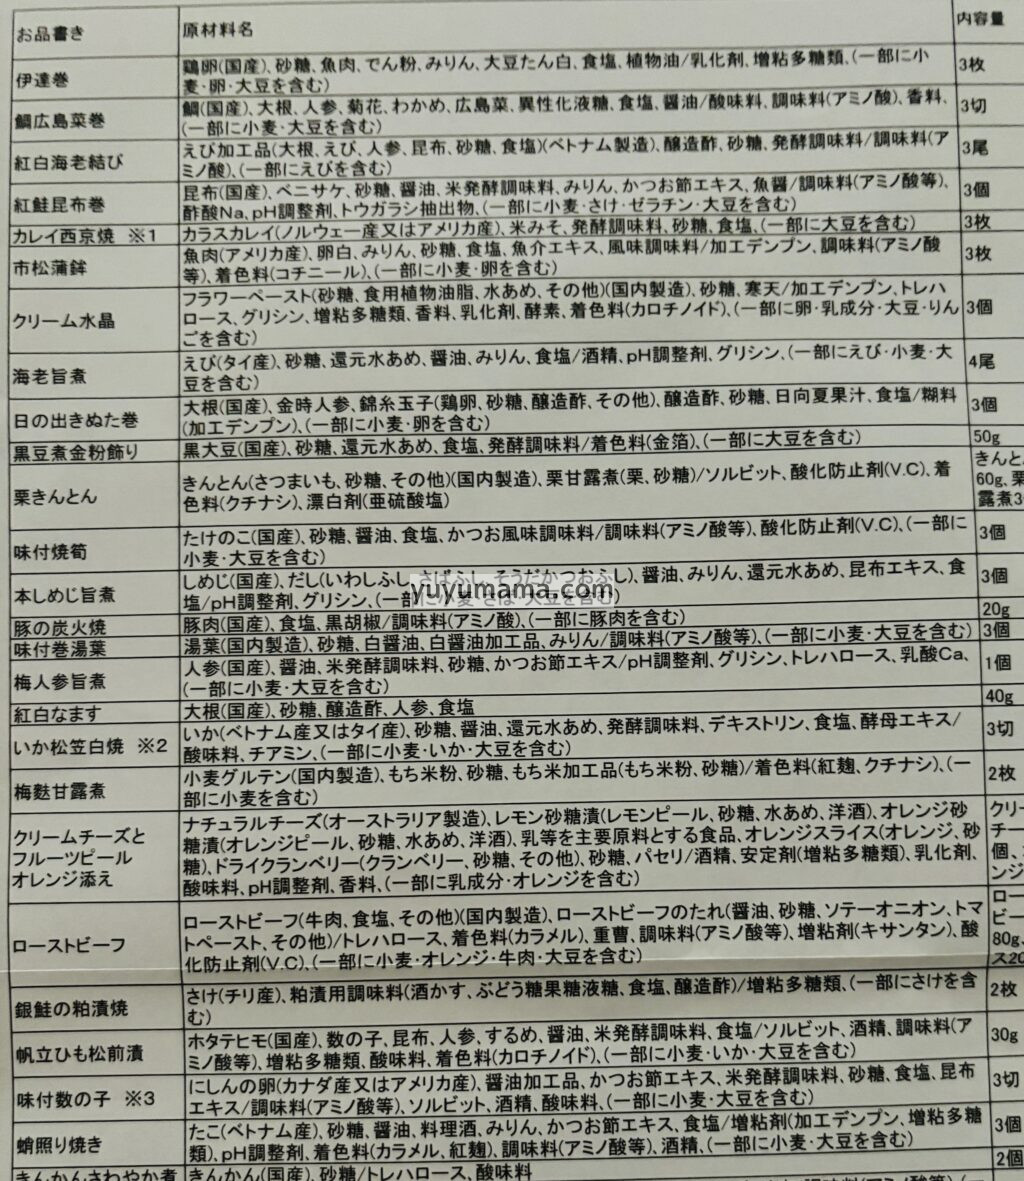 お品書き 原材料名 内容量
伊達巻 鶏卵(国産)、砂糖、魚肉、でん粉、みりん、大豆たん白、食塩、植物油/乳化剤、増粘多糖類、(一部に小 3枚
麦・卵・大豆を含む)
鯛広島菜巻 鯛(国産)、大根、人参、菊花、わかめ、広島菜、異性化液糖、食塩、醤油/酸味料、調味料(アミノ酸)、香料、 3切
(一部に小麦・大豆を含む)
紅白海老結び えび加工品(大根、えび、人参、昆布、砂糖、食塩)(ベトナム製造)、醸造酢、砂糖、発酵調味料/調味料(ア 3尾
ミノ酸)、(一部にえびを含む)
紅鮭昆布巻 昆布(国産)、ベニサケ、砂糖、醤油、米発酵調味料、みりん、かつお節エキス、魚醤/調味料(アミノ酸等)、 3個
酢酸Na、pH調整剤、トウガラシ抽出物、(一部に小麦・さけ・ゼラチン・大豆を含む)
カレイ西京焼 ※1 カラスカレイ(ノルウェー産又はアメリカ産)、米みそ、発酵調味料、砂糖、食塩、(一部に大豆を含む) 3枚
市松蒲鉾 魚肉(アメリカ産)、卵白、みりん、砂糖、食塩、魚介エキス、風味調味料/加工デンプン、調味料(アミノ酸 3枚
等)、着色料(コチニール)、(一部に小麦・卵を含む)
クリーム水晶 フラワーペースト(砂糖、食用植物油脂、水あめ、その他)(国内製造)、砂糖、寒天/加工デンプン、トレハ 3個
ロース、グリシン、増粘多糖類、香料、乳化剤、酵素、着色料(カロチノイド)、(一部に卵・乳成分・大豆・りん
ごを含む)
海老旨煮 えび(タイ産)、砂糖、還元水あめ、醤油、みりん、食塩/酒精、pH調整剤、グリシン、(一部にえび・小麦・大 4尾
豆を含む)
日の出きぬた巻 大根(国産)、金時人参、錦糸玉子(鶏卵、砂糖、醸造酢、その他)、醸造酢、砂糖、日向夏果汁、食塩/糊料 3個
(加工デンプン)、(一部に小麦・卵を含む)
黒豆煮金粉飾り 黒大豆(国産)、砂糖、還元水あめ、食塩、発酵調味料/着色料(金箔)、(一部に大豆を含む) 50g
栗きんとん きんとん(さつまいも、砂糖、その他)(国内製造)、栗甘露煮(栗、砂糖)/ソルビット、酸化防止剤(V.C)、着 きんと
色料(クチナシ)、漂白剤(亜硫酸塩) 60g、栗
露煮3
味付焼筍 たけのこ(国産)、砂糖、醤油、食塩、かつお風味調味料/調味料(アミノ酸等)、酸化防止剤(V.C)、(一部に 3個
小麦・大豆を含む)
本しめじ旨煮 しめじ(国産)、だし(いわしふし、さばふし、そうだかつおふし)、醤油、みりん、還元水あめ、昆布エキス、食 3個
塩/pH調整剤、グリシン、(一部に小麦・さば・大豆を含む)
yuyumama.com
豚の炭火焼 豚肉(国産)、食塩、黒胡椒/調味料(アミノ酸)、(一部に豚肉を含む) 20g
味付巻湯葉 湯葉(国内製造)、砂糖、白醤油、白醤油加工品、みりん/調味料(アミノ酸等)、(一部に小麦・大豆を含む) 3個
梅人参旨煮 人参(国産)、醤油、米発酵調味料、砂糖、かつお節エキス/pH調整剤、グリシン、トレハロース、乳酸Ca、 1個
(一部に小麦・大豆を含む)
紅白なます 大根(国産)、砂糖、醸造酢、人参、食塩 40g
いか松笠白焼 ※2 いか(ベトナム産又はタイ産)、砂糖、醤油、還元水あめ、発酵調味料、デキストリン、食塩、酵母エキス/ 3切
酸味料、チアミン、(一部に小麦・いか・大豆を含む)
梅麩甘露煮 小麦グルテン(国内製造)、もち米粉、砂糖、もち米加工品(もち米粉、砂糖)/着色料(紅麹、クチナシ)、(一 2枚
部に小麦を含む)
クリームチーズと ナチュラルチーズ(オーストラリア製造)、レモン砂糖漬(レモンピール、砂糖、水あめ、洋酒)、オレンジ砂 クリー
フルーツピール 糖漬(オレンジピール、砂糖、水あめ、洋酒)、乳等を主要原料とする食品、オレンジスライス(オレンジ、砂 チー
オレンジ添え 糖)、ドライクランベリー(クランベリー、砂糖、その他)、砂糖、パセリ/酒精、安定剤(増粘多糖類)、乳化剤、 個、
酸味料、pH調整剤、香料、(一部に乳成分・オレンジを含む) ンジ
ローストビーフ ローストビーフ(牛肉、食塩、その他)(国内製造)、ローストビーフのたれ(醤油、砂糖、ソテーオニオン、トマ ロー
トペースト、その他)/トレハロース、着色料(カラメル)、重曹、調味料(アミノ酸等)、増粘剤(キサンタン)、酸 ビー
化防止剤(V.C)、(一部に小麦・オレンジ・牛肉・大豆を含む) 80g、
ス20
銀鮭の粕漬焼 さけ(チリ産)、粕漬用調味料(酒かす、ぶどう糖果糖液糖、食塩、醸造酢)/増粘多糖類、(一部にさけを含 2枚
む)
帆立ひも松前漬 ホタテヒモ(国産)、数の子、昆布、人参、するめ、醤油、米発酵調味料、食塩/ソルビット、酒精、調味料(ア 30g
ミノ酸等)、増粘多糖類、酸味料、着色料(カロチノイド)、(一部に小麦・いか・大豆を含む)
味付数の子 ※3 にしんの卵(カナダ産又はアメリカ産)、醤油加工品、かつお節エキス、米発酵調味料、砂糖、食塩、昆布 3切
エキス/調味料(アミノ酸等)、ソルビット、酒精、酸味料、(一部に小麦・大豆を含む)
蛸照り焼き たこ(ベトナム産)、砂糖、醤油、料理酒、みりん、かつお節エキス、食塩/増粘剤(加工デンプン、増粘多糖 3個
類)、pH調整剤、着色料(カラメル、紅麹)、調味料(アミノ酸等)、酒精、(一部に小麦・大豆を含む)
きんかんさわやか煮 きんかん(国産)、砂糖/トレハロース、酸味料 2個